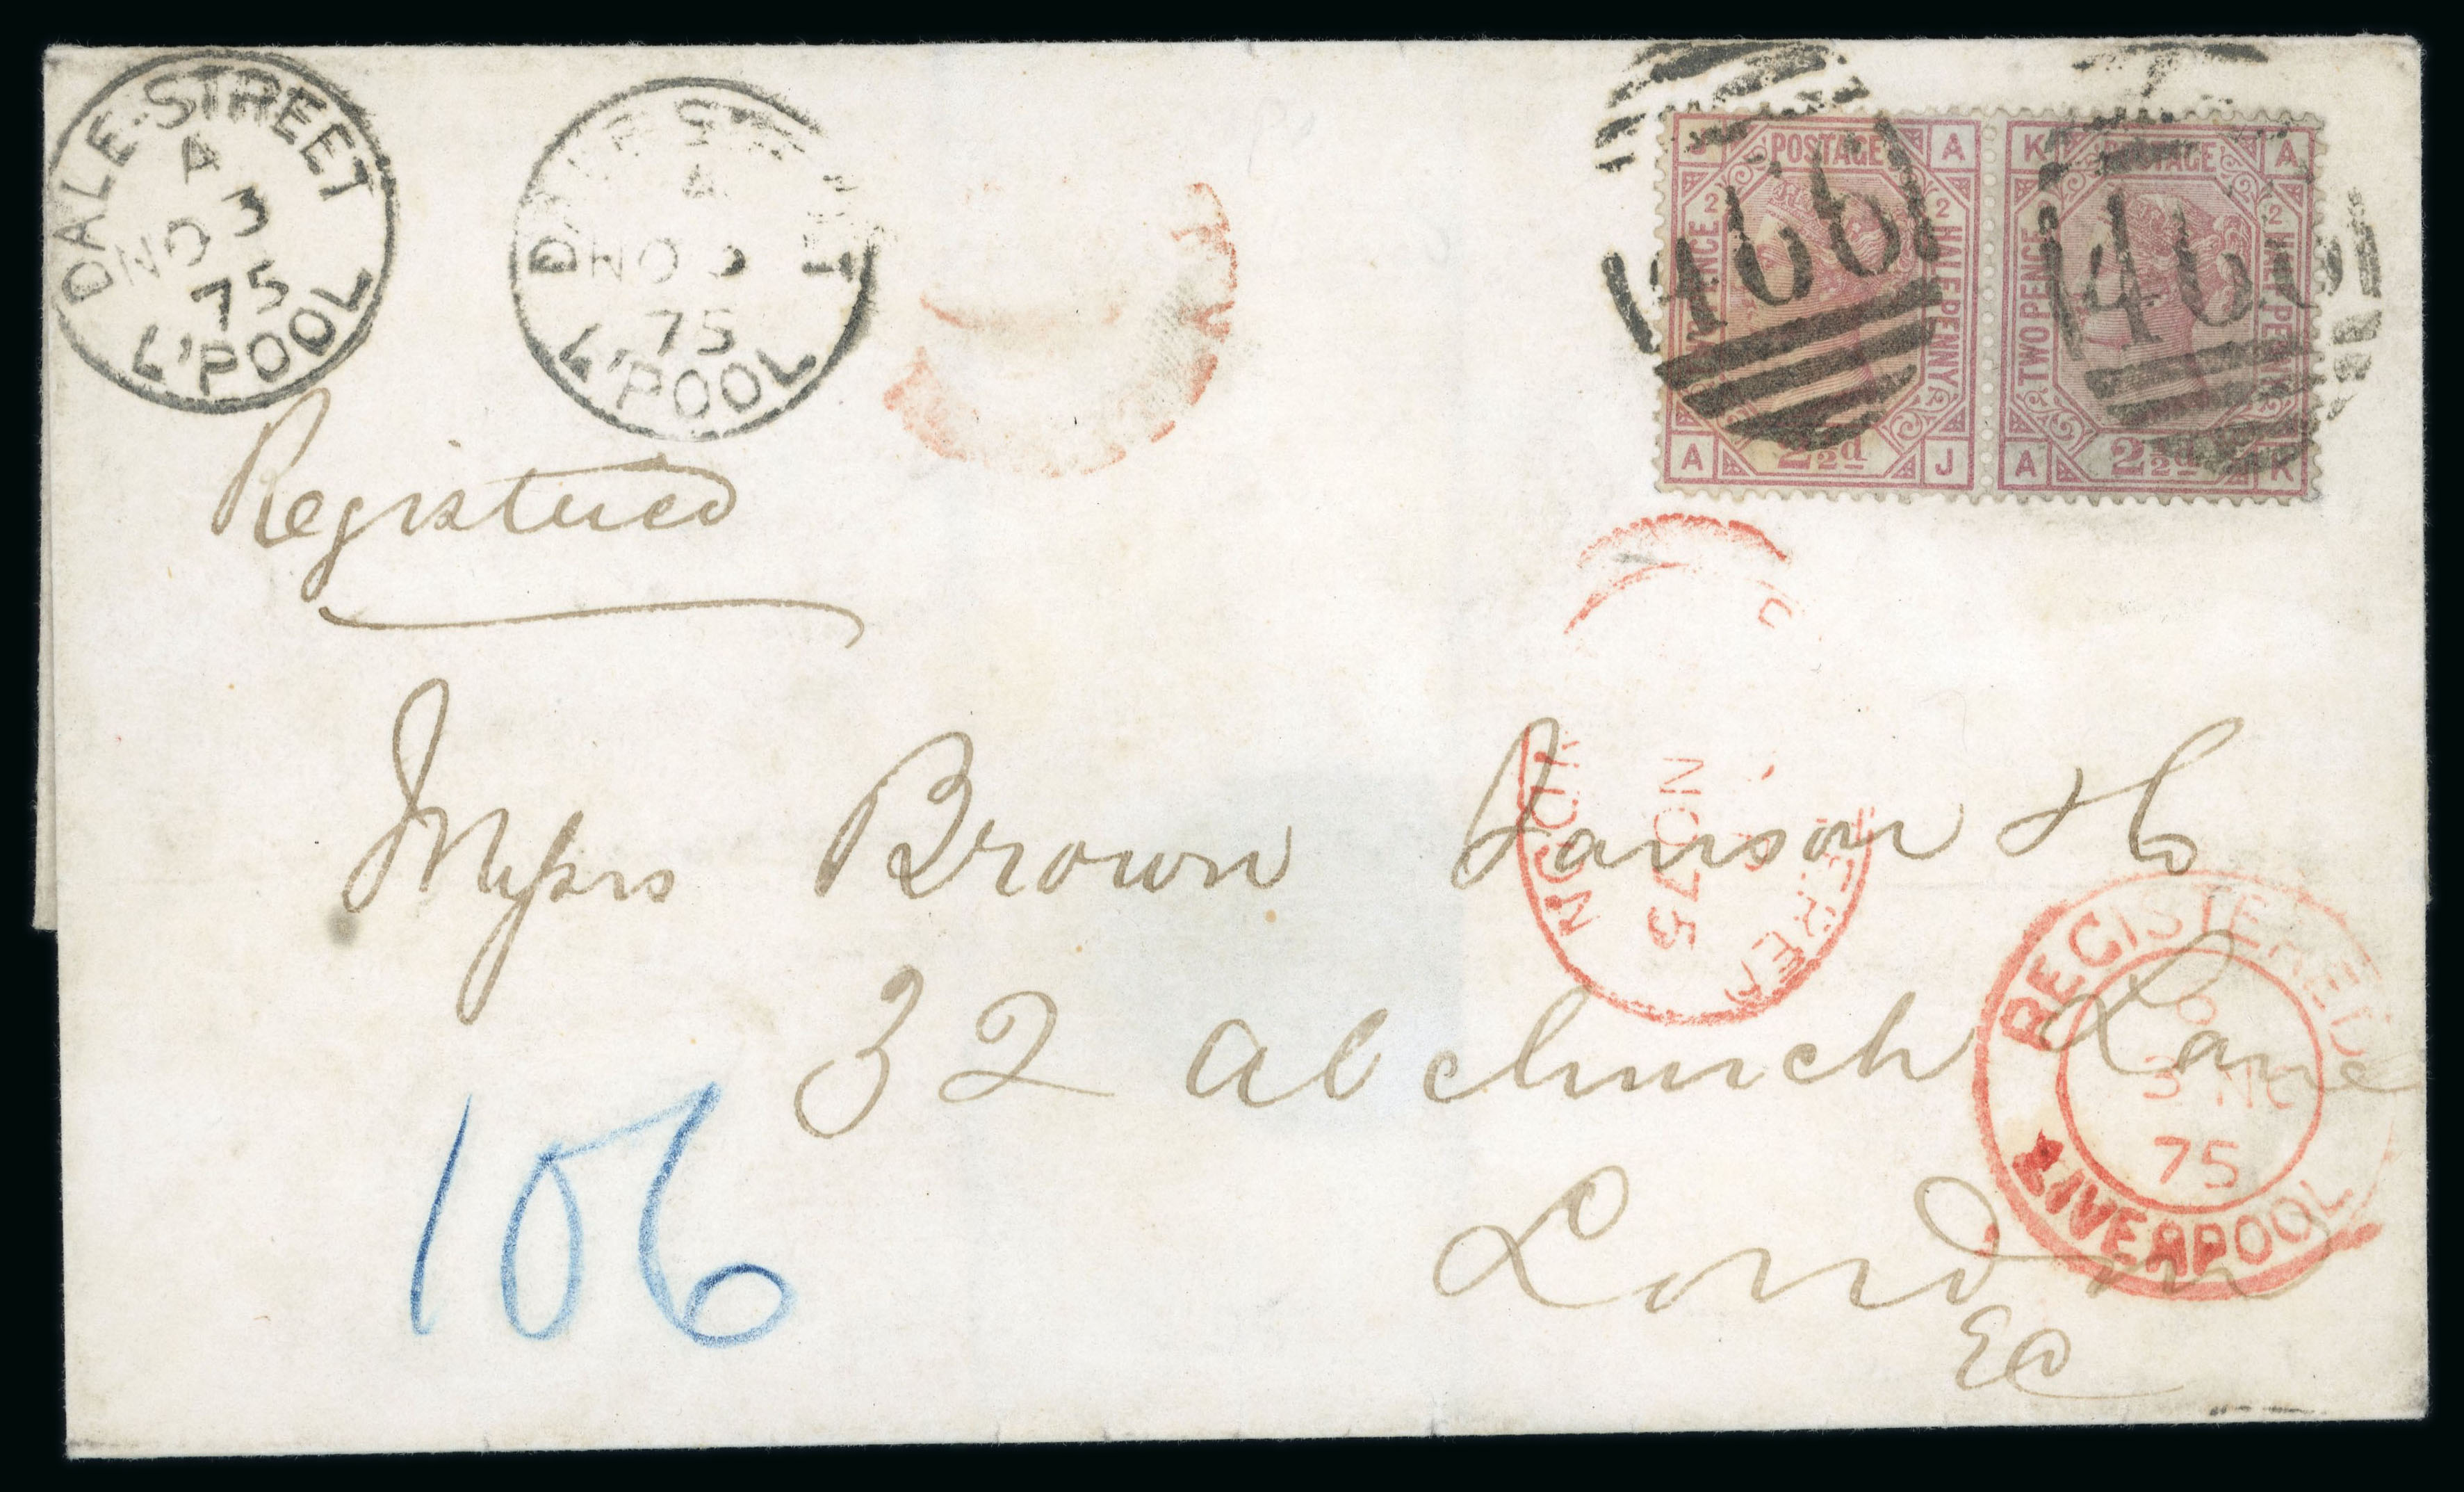 DALE-STREET
A
NO 3
75
L'POOL
DALE
A
NO 3
75
L'POOL
POSTAGE A
2 2
PENCE HALFPENNY
A 2½d J
466
K POSTAGE A
2
TWO PENCE HALFPENNY
A 2½d K
466
Registered
Messrs Brown Janson & Co
32 Abchurch Lane
London
EC
NO 75
REGISTERED
3 NO
75
LIVERPOOL
106